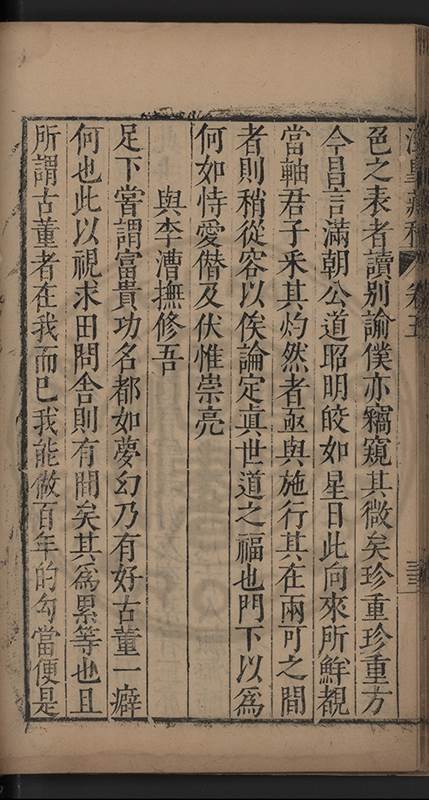 色之表者讀别諭僕亦竊窺其微矣珍重珍重方
今昌言滿朝公道昭明皎如星日此向來所鮮覩
當軸君子采其灼然者亟與施行其在兩可之間
者則稍從容以俟論定眞世道之福也門下以爲
何如恃愛僭及伏惟崇亮
與李漕撫修吾
足下嘗謂富貴功名都如夢幻乃有好古董一癖
何也此以視求田問舍則有間矣其爲累等也且
所謂古董者在我而已我能做百年的勾當便是